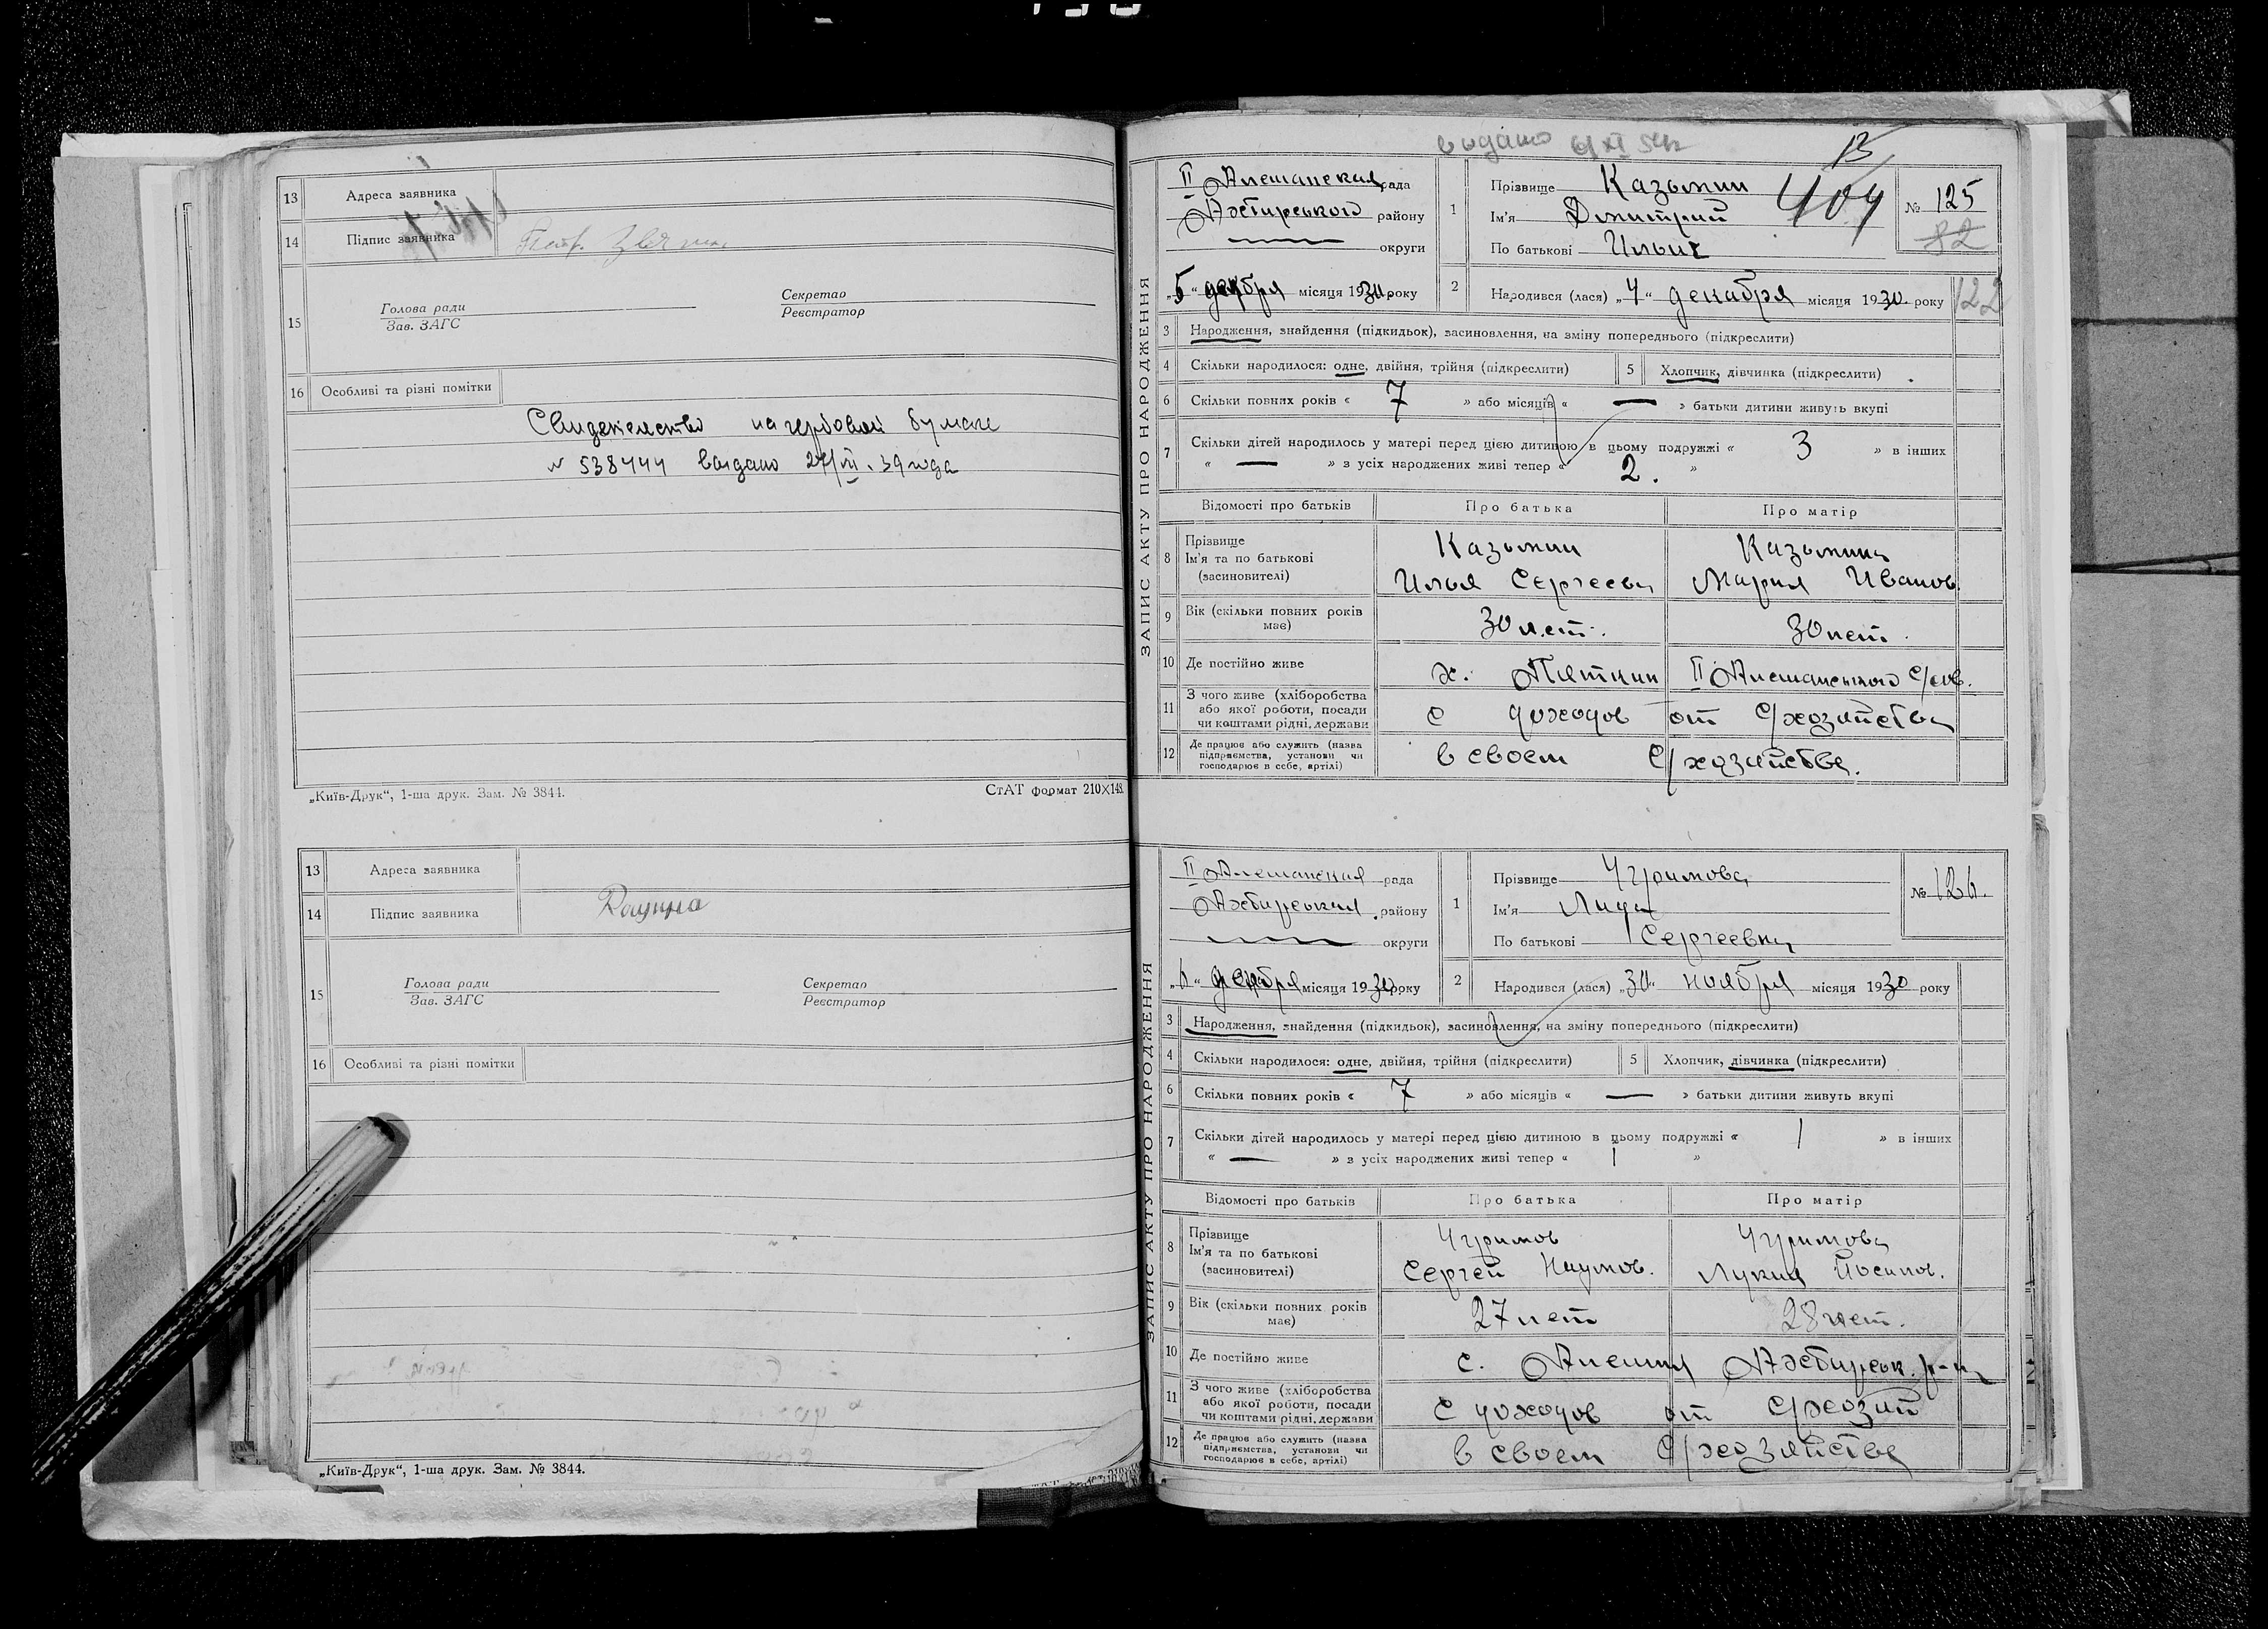 13 Адреса заявника
14 Підпис заявника
15 Голова ради Секретар
Зав. ЗАГС Реєстратор
16 Особливі та різні помітки
Свидетельство на гербовой бумаге
№ 538444 выдано 27/III.39 года
„Київ-Друк“, 1-ша друк. Зам. № 3844. СтАТ формат 210×148.
13 Адреса заявника
14 Підпис заявника
15 Голова ради Секретар
Зав. ЗАГС Реєстратор
16 Особливі та різні помітки
„Київ-Друк“, 1-ша друк. Зам. № 3844.
выдано
13
ЗАПИС АКТУ ПРО НАРОДЖЕННЯ
II Алешанская рада
Ахтирського району
округи
„5“ декабря місяця 1930 року
1 Прізвище Казьмин
Ім'я Дмитрий
По батькові Ильич
404
№ 125
82
2 Народився (лася) „4“ декабря місяця 1930 року
122
3 Народження, знайдення (підкидьок), засиновлення, на зміну попереднього (підкреслити)
4 Скільки народилося: одне, двійня, трійня (підкреслити) 5 Хлопчик, дівчинка (підкреслити)
6 Скільки повних років « 7 » або місяців « — » батьки дитини живуть вкупі
7 Скільки дітей народилось у матері перед цією дитиною в цьому подружжі « 3 » в інших
« — » з усіх народжених живі тепер « 2. »
Відомості про батьків Про батька Про матір
8 Прізвище Казьмин Казьмина
Ім'я та по батькові
(засиновителі) Илья Сергееви Мария Иванов.
9 Вік (скільки повних років має) 30 лет. 30 лет.
10 Де постійно живе х. Пяткин II Алешанского с/сов.
11 З чого живе (хліборобства
або якої роботи, посади
чи коштами рідні, держави с доходов от с/хозяйства
12 Де працює або служить (назва
підприємства, установи чи
господарює в себе, артілі) в своем с/хозяйстве.
ЗАПИС АКТУ ПРО НАРОДЖЕННЯ
II Алешанская рада
Ахтирская району
округи
„6“ декабря місяця 1930 року
1 Прізвище Чуримова
Ім'я Лида
По батькові Сергеевна
№ 126.
2 Народився (лася) „30“ ноября місяця 1930 року
3 Народження, знайдення (підкидьок), засиновлення, на зміну попереднього (підкреслити)
4 Скільки народилося: одне, двійня, трійня (підкреслити) 5 Хлопчик, дівчинка (підкреслити)
6 Скільки повних років « 7 » або місяців « — » батьки дитини живуть вкупі
7 Скільки дітей народилось у матері перед цією дитиною в цьому подружжі « 1 » в інших
« — » з усіх народжених живі тепер « 1 »
Відомості про батьків Про батька Про матір
8 Прізвище Чуримов Чуримова
Ім'я та по батькові
(засиновителі) Сергей Наумов. Лукия Йосипов.
9 Вік (скільки повних років має) 27 лет 28 лет.
10 Де постійно живе с. Алешня Ахтирськ. р-на
11 З чого живе (хліборобства
або якої роботи, посади
чи коштами рідні, держави с доходов от с/хозяй
12 Де працює або служить (назва
підприємства, установи чи
господарює в себе, артілі) в своем с/хозяйстве